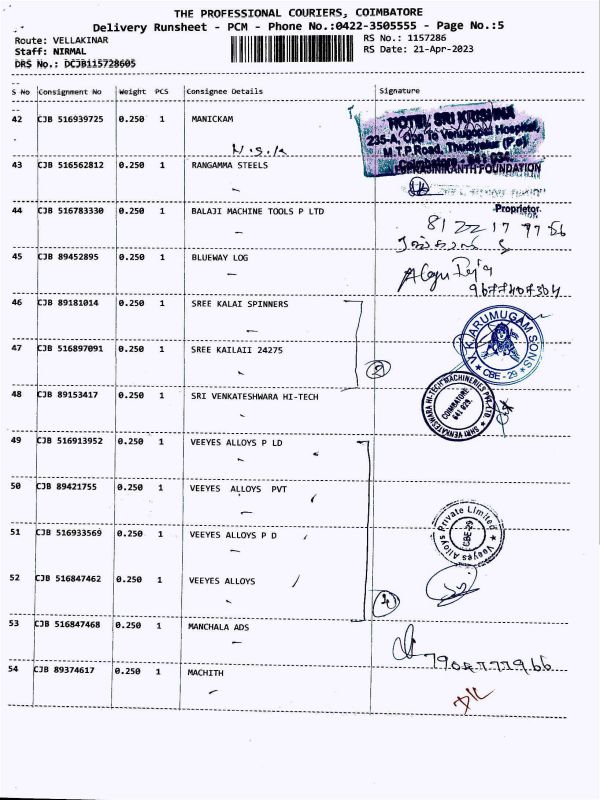 THE PROFESSIONAL COURIERS, COIMBATORE
Delivery Runsheet - PCM - Phone No.:0422-3505555 - Page No.:5
Route: VELLAKINAR RS No.: 1157286
Staff: NIRMAL RS Date: 21-Apr-2023
DRS No.: DCJB115728605
S No Consignment No Weight PCS Consignee Details Signature
42 CJB 516939725 0.250 1 MANICKAM
HOTEL SRI KRISHNA
235-A, Opp To Venugopal Hospital,
M.T.P Road, Thudiyalur (P.o)
Coimbatore - 641 034
43 CJB 516562812 0.250 1 RANGAMMA STEELS
FOUNDATION
44 CJB 516783330 0.250 1 BALAJI MACHINE TOOLS P LTD
Proprietor.
45 CJB 89452895 0.250 1 BLUEWAY LOG
46 CJB 89181014 0.250 1 SREE KALAI SPINNERS
V.K. ARUMUGAM SONS
* CBE - 29 *
47 CJB 516897091 0.250 1 SREE KAILAII 24275
2
48 CJB 89153417 0.250 1 SRI VENKATESHWARA HI-TECH
SHRI VENKATESHWARA HI-TECH MACHINERIES PVT. LTD
COIMBATORE
641 029.
49 CJB 516913952 0.250 1 VEEYES ALLOYS P LD
50 CJB 89421755 0.250 1 VEEYES ALLOYS PVT
51 CJB 516933569 0.250 1 VEEYES ALLOYS P D
Veeyes Alloys Private Limited
CBE-29
52 CJB 516847462 0.250 1 VEEYES ALLOYS
4
53 CJB 516847468 0.250 1 MANCHALA ADS
54 CJB 89374617 0.250 1 MACHITH